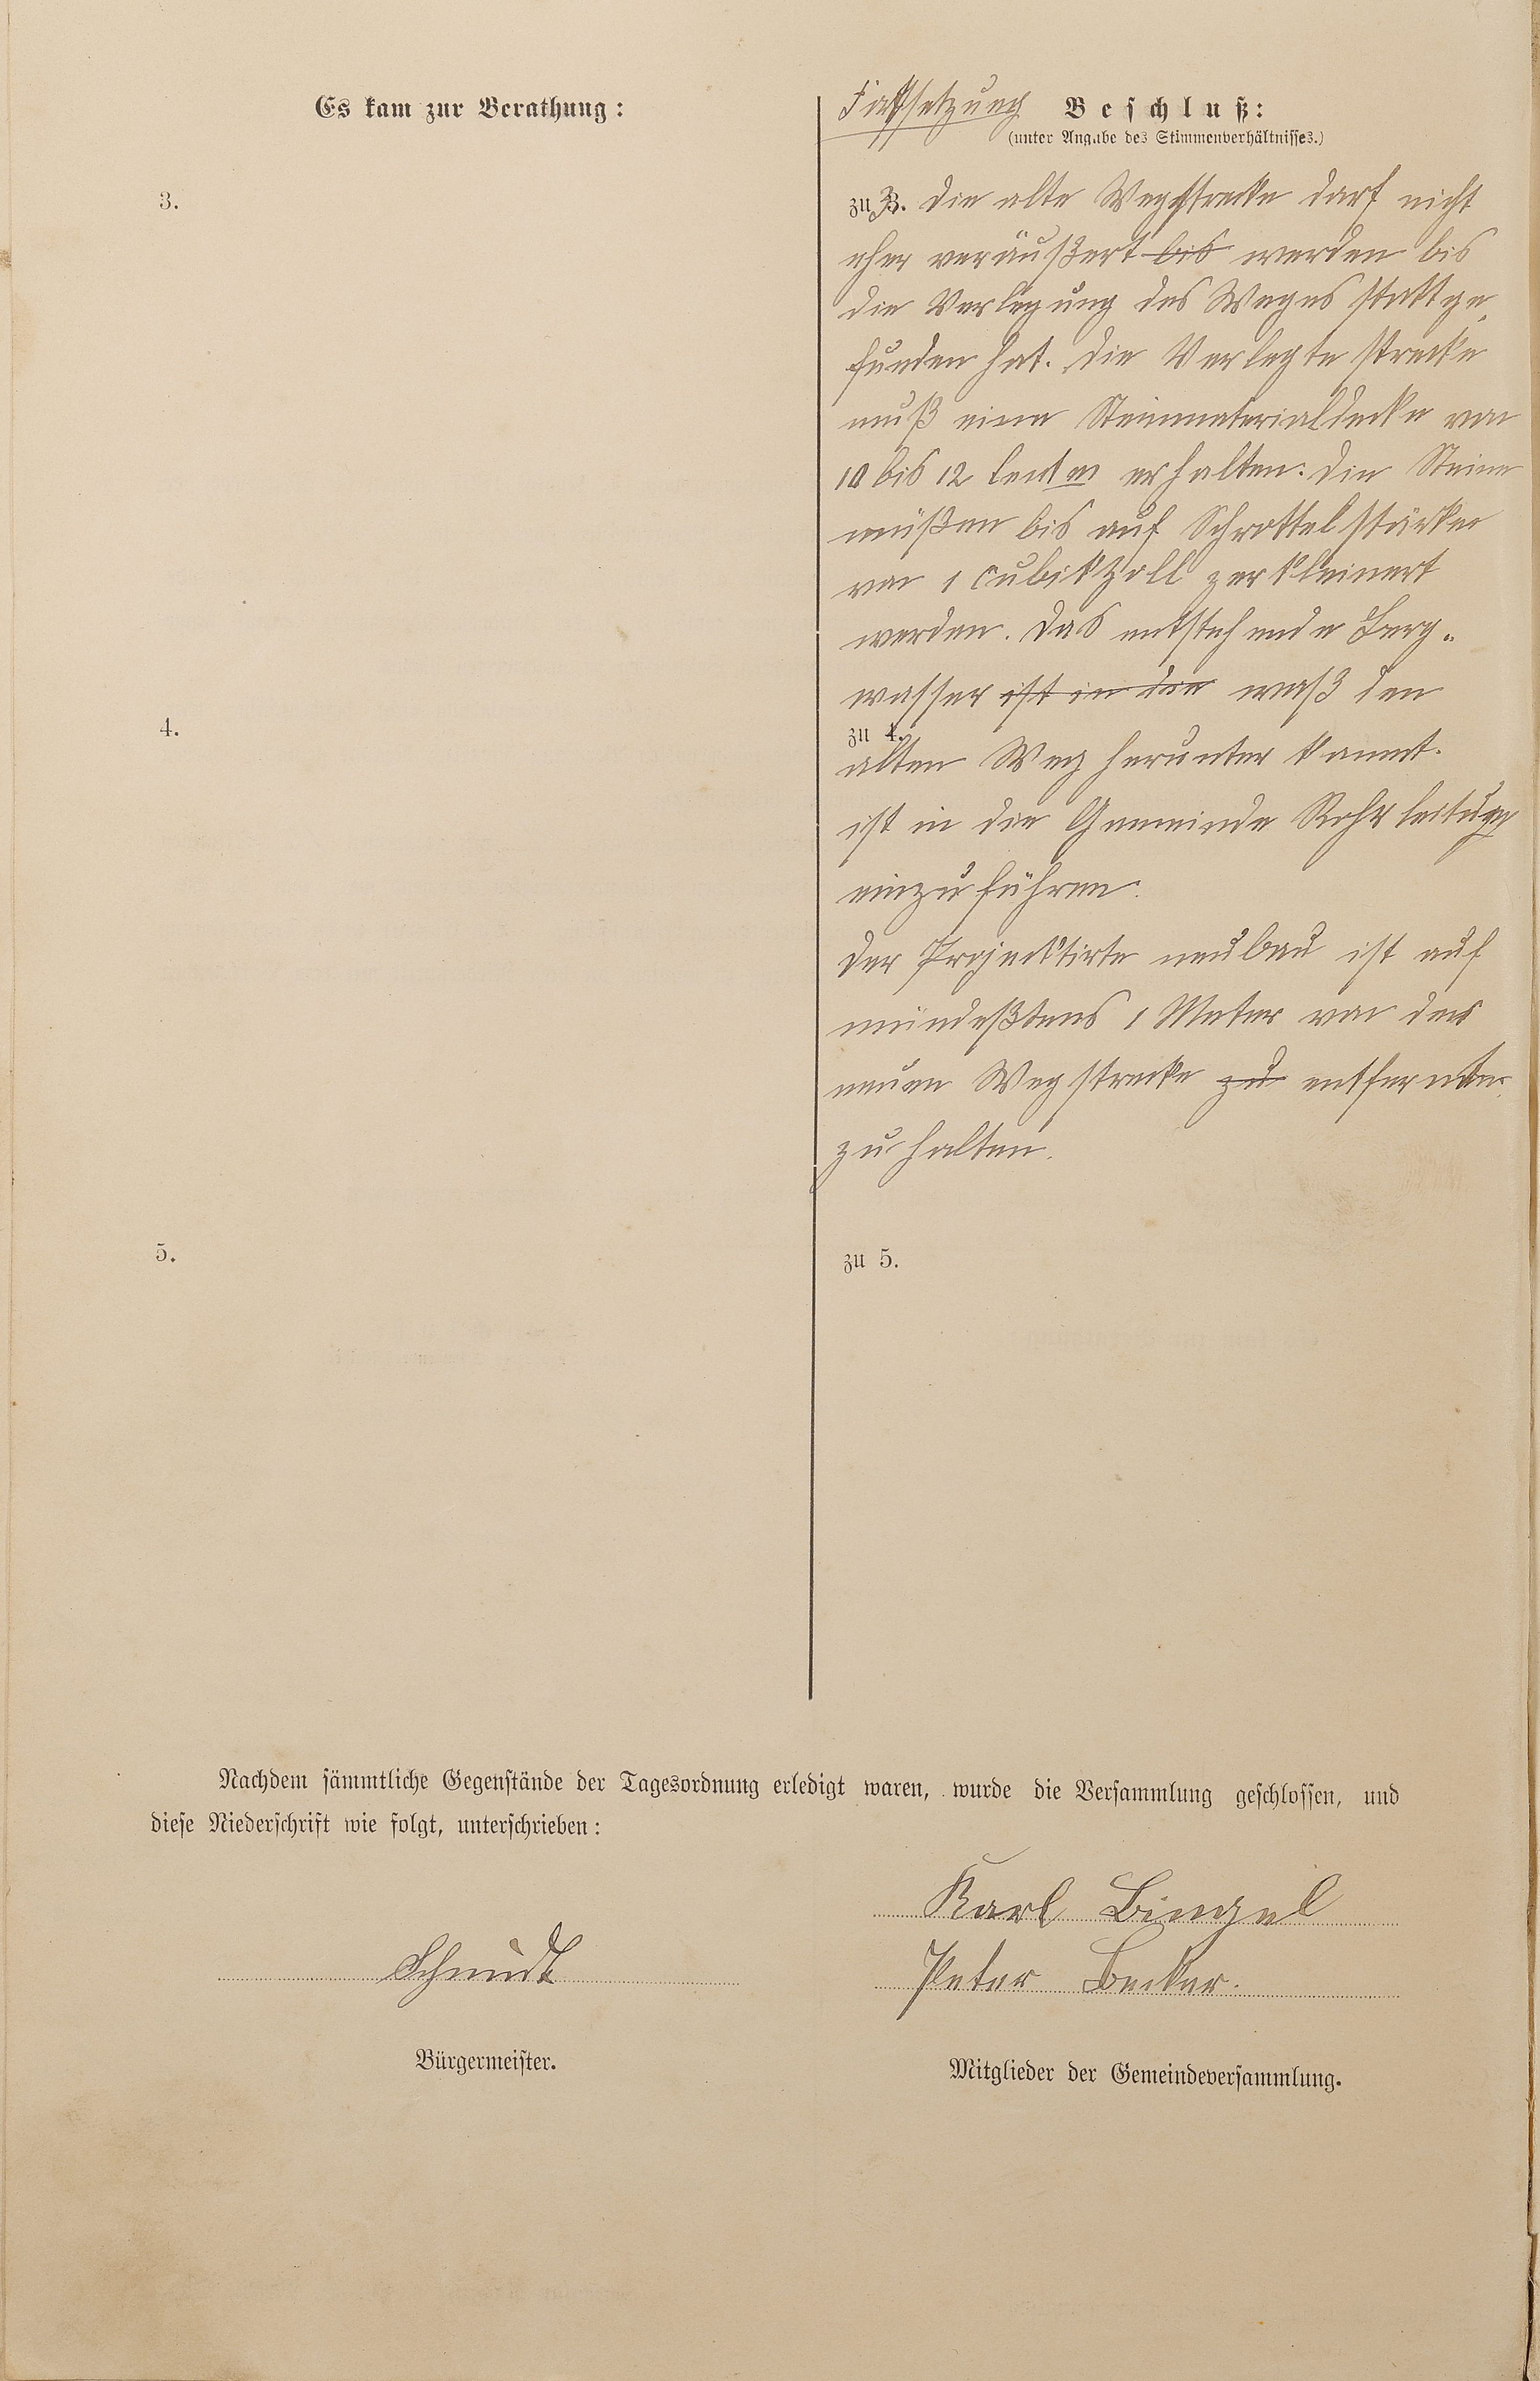 Es kam zur Berathung:
3.
4.
5.
Fortsetzung Beschluß:
(unter Angabe des Stimmenverhältnisses.)
zu 3. die alte Wegstrecke darf nicht
eher veräußert bis werden bis
die Verlegung des Weges stattge-
funden hat. die Verlegte strecke
muß eine Steinmaterialdecke von
10 bis 12 Centm erhalten: die Steine
müßen bis auf Schrottelstärke
von 1 cubikzoll zerkleinert
werden. Das entstehende Berg-
wasser ist in die waß den
zu 4.
alten Weg herunter kommt.
ist in die Gemeinde Rohrleitung
einzuführen.
der Projecktirte neubau ist auf
mindeßtens 1 Meter von der
neuen Wegstrecke zu entfernt
zu halten.
zu 5.
Nachdem sämmtliche Gegenstände der Tagesordnung erledigt waren, wurde die Versammlung geschlossen, und
diese Niederschrift wie folgt, unterschrieben:
Karl Bingel
Schmidt
Peter Becker.
Bürgermeister.
Mitglieder der Gemeindeversammlung.